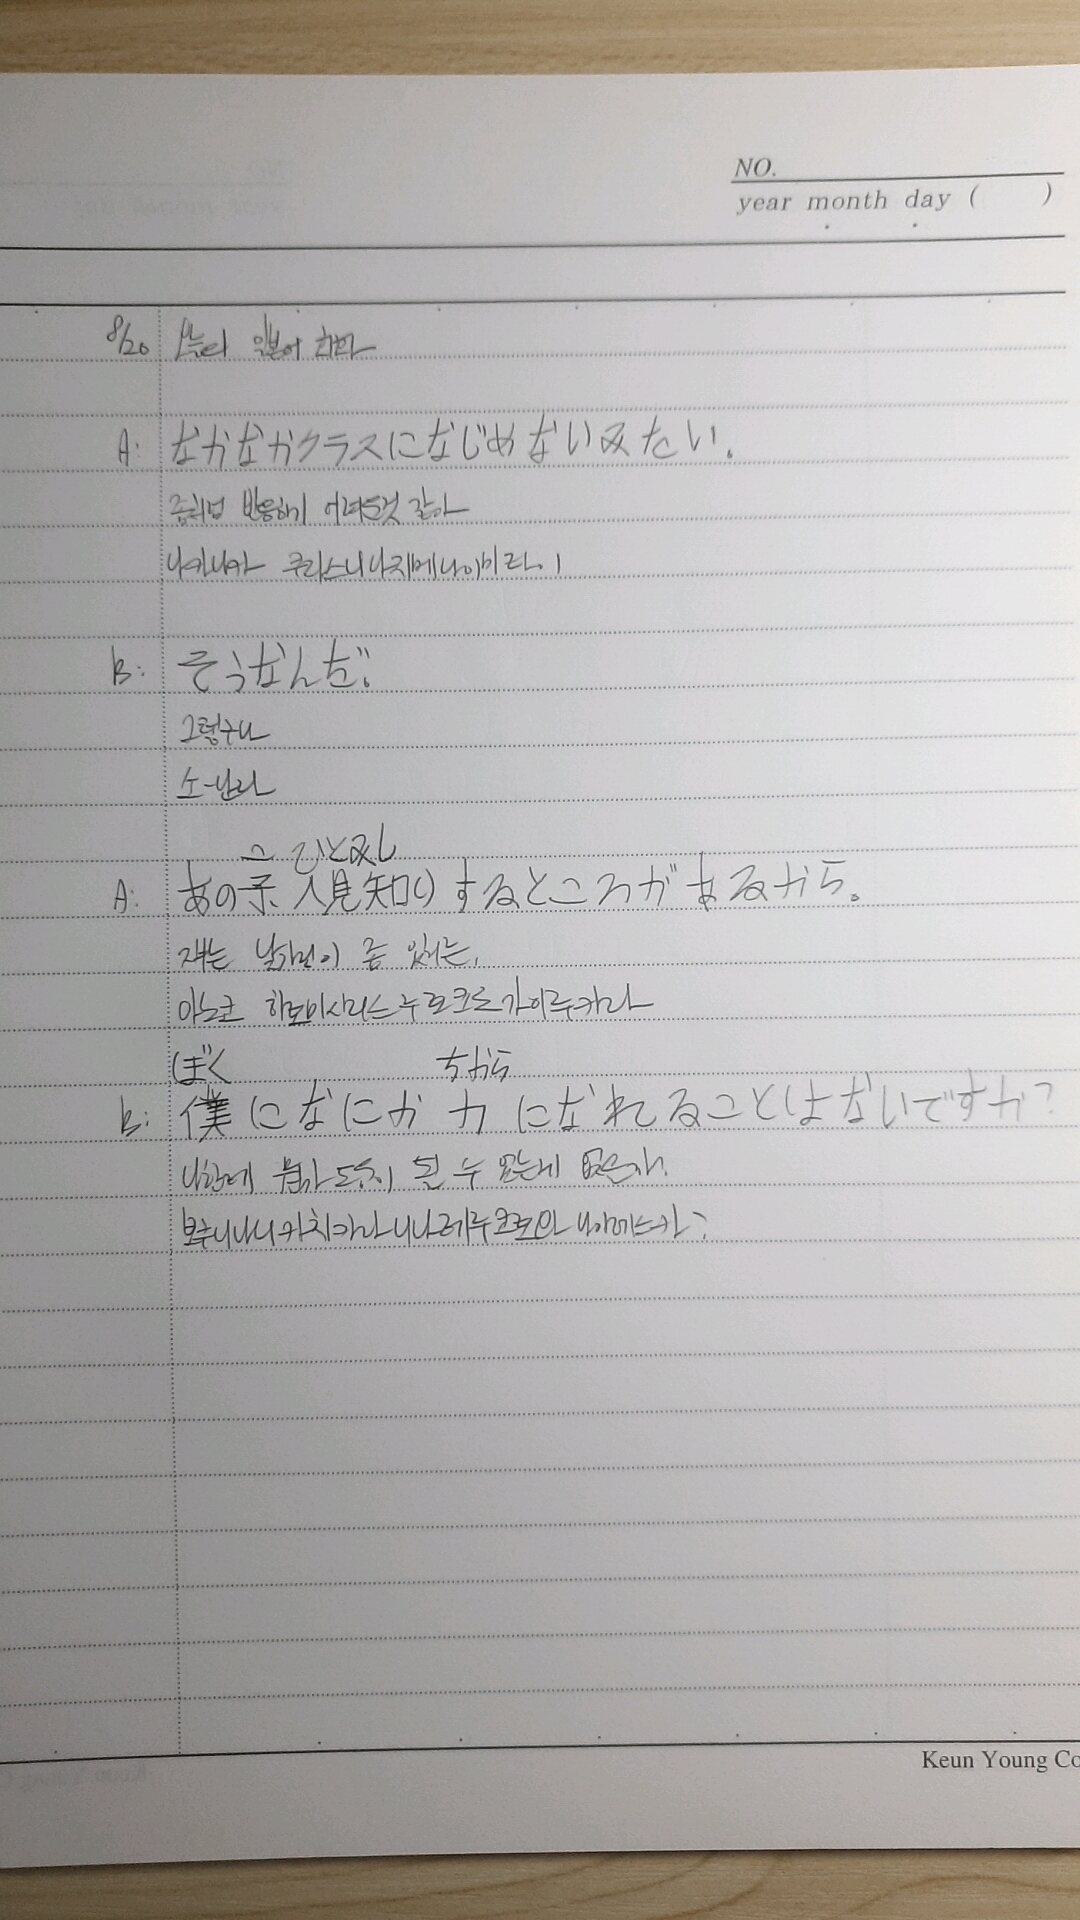 NO.
year month day ( )
8/20 오늘의 일본어 회화
A: なかなかクラスになじめないみたい。
반응하기 어려운것 같아
B: そうなんだ。
그렇구나
소-난다
こ ひとみし
A: あの子 人見知りするところがあるから。
쟤는 낯가림이 좀 있
아노코 히토미시리스루토코로가아루카라
ぼく ちから
B: 僕になにか力になれることはないですか?
나한테 뭔가 도움이 될 수 없는가.
보쿠니나니카치카라니나레루코토와나이데스카?
Keun Young Co